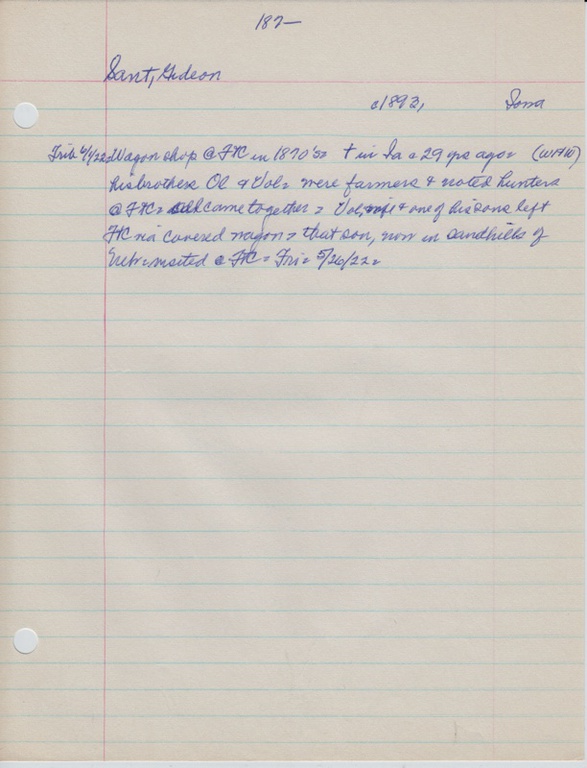 187-
Sant, Gideon
c1893, Iowa
Trib 6/1/22= Wagon shop @ FC in 1870's= † in Ia c 29 yrs ago= (WAW)
his brothers Ol & Vol= were farmers & noted hunters
@ FC= all came together= Vol, wife & one of his sons left
FC via covered wagon= that son, now in sandhills of
Nebr= visited @ FC= Fri= 5/26/22=